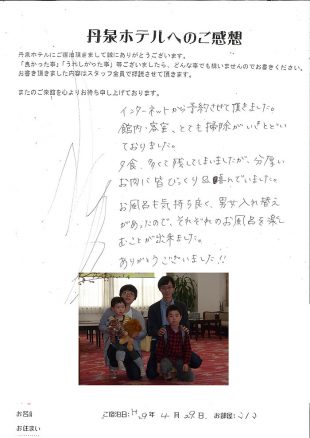 丹泉ホテルへのご感想
丹泉ホテルにご宿泊頂きまして誠にありがとうございます。
「良かった事」「うれしかった事」等ございましたら、どんな事でも構いませんのでお書きください。
お書き頂きました内容はスタッフ全員で拝読させて頂きます。
またのご来館を心よりお待ち申し上げております。
インターネットから予約させて頂きました。
館内・客室、とても掃除がいきとどい
ておりました。
夕食、多くて残してしまいましたが、分厚い
お肉に皆びっくり&喜んでいました。
お風呂も気持ち良く、男女入れ替え
があったので、それぞれのお風呂を楽し
むことが出来ました。
ありがとうございました!!
ご宿泊日:H29年4月29日、お部屋:212
お名前
お住まい